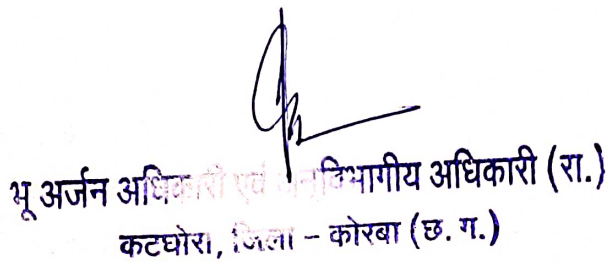 भू अर्जन अधिकारी एवं अनुविभागीय अधिकारी (रा.)
कटघोरा, जिला - कोरबा (छ. ग.)